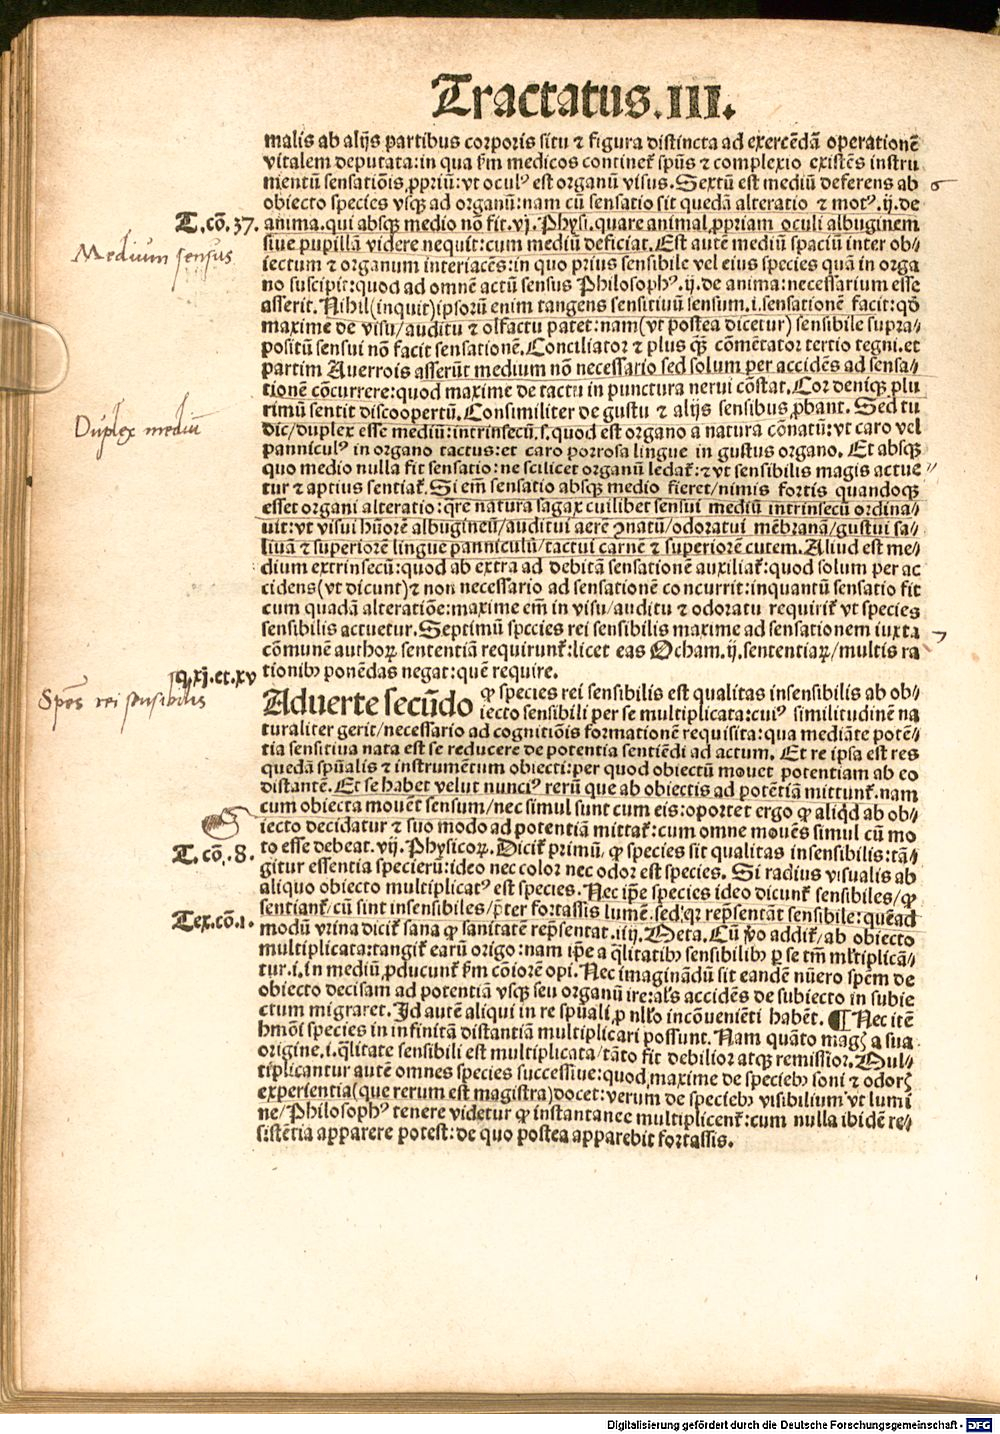 Tractatus.III.
malis ab alijs partibus corporis situ ⁊ figura distincta ad exercēdā operationē
vitalem deputata:in qua ẜm medicos continet̉ spūs ⁊ complexio existēs instru
mentū sensatiōis ꝓpriū:vt oculꝰ est organū visus.Sextū est mediū deferens ab
6
obiecto species vsqꝫ ad organū:nam cū sensatio sit quedā alteratio ⁊ motꝰ.ij.de
T.cō.37.
anima.qui absqꝫ medio nō fit.vj.Physi.quare animal ꝓpriam oculi albuginem
Medium sensus
siue pupillā videre nequit:cum mediū deficiat.Est autē mediū spaciū inter ob⸗
iectum ⁊ organum interiacēs:in quo prius sensibile vel eius species quā in orga
no suscipit:quod ad omnē actū sensus Philosophꝰ.ij.de anima:necessarium esse
asserit.Nihil(inquit)ipsorū enim tangens sensitiuū sensum.i.sensationē facit:qđ
maxime de visu/auditu ⁊ olfactu patet:nam(vt postea dicetur) sensibile supra⸗
positū sensui nō facit sensationē.Conciliator ⁊ plus qꝫ cōmētator tertio tegni.et
partim Auerrois asserūt medium nō necessario sed solum per accidēs ad sensa⸗
tionē cōcurrere:quod maxime de tactu in punctura nerui cōstat.Cor deniqꝫ plu
rimū sentit discoopertū.Consimiliter de gustu ⁊ alijs sensibus ꝓbant. Sed tu
Duplex mediū
dic/duplex esse mediū:intrinsecū.s.quod est organo a natura cōnatū:vt caro vel
panniculꝰ in organo tactus:et caro porrosa lingue in gustus organo. Et absqꝫ
quo medio nulla fit sensatio:ne scilicet organū ledat̉:⁊ vt sensibilis magis actue⸗
tur ⁊ aptius sentiat̉.Si em̄ sensatio absqꝫ medio fieret/nimis fortis quandoqꝫ
esset organi alteratio:q̄re natura sagax cuilibet sensui mediū intrinsecū ordina⸗
uit:vt visui hūorē albugineū/auditui aerē ꝯnatū/odoratui mēbranā/gustui sa⸗
liuā ⁊ superiorē lingue panniculū/tactui carnē ⁊ superiorē cutem.Aliud est me⸗
dium extrinsecū:quod ab extra ad debitā sensationē auxiliat̉:quod solum per ac
cidens(vt dicunt)⁊ non necessario ad sensationē concurrit:inquantū sensatio fit
cum quadā alteratiōe:maxime em̄ in visu/auditu ⁊ odoratu requirit̉ vt species
sensibilis actuetur.Septimū species rei sensibilis maxime ad sensationem iuxta
7
cōmunē authoꝝ sententiā requirunt̉:licet eas Ocham.ij.sententiaꝝ/multis ra
q.xj.et.xv
tionibꝰ ponēdas negat:quē require.
Spēs rei sensibilis
Aduerte secūdo ꝙ species rei sensibilis est qualitas insensibilis ab ob⸗
iecto sensibili per se multiplicata:cuiꝰ similitudinē na
turaliter gerit/necessario ad cognitiōis formationē requisita:qua mediāte potē⸗
tia sensitiua nata est se reducere de potentia sentiēdi ad actum. Et re ipsa est res
quedā spūalis ⁊ instrumētum obiecti:per quod obiectū mouet potentiam ab eo
distantē.Et se habet velut nunciꝰ rerū que ab obiectis ad potētiā mittunt̉.nam
cum obiecta mouēt sensum/nec simul sunt cum eis:oportet ergo ꝙ aliqđ ab ob⸗
iecto decidatur ⁊ suo modo ad potentiā mittat̉:cum omne mouēs simul cū mo
T.cō.8.
to esse debeat.vij.Physicoꝝ.Dicit̉ primū, ꝙ species sit qualitas insensibilis:tā⸗
gitur essentia specierū:ideo nec color nec odor est species. Si radius visualis ab
aliquo obiecto multiplicatꝰ est species. Nec ip̄e species ideo dicunt̉ sensibiles/ꝙ
sentiant̉/cū sint insensibiles/p̄ter fortassis lumē.sed qꝛ rep̄sentāt sensibile:quēad
Tex.cō.1.
modū vrina dicit̉ sana ꝙ sanitatē rep̄sentat.iiij.Meta.Cū ꝟo addit̉/ab obiecto
multiplicata:tangit̉ earū origo:nam ip̄e a q̄litatibꝰ sensibilibꝰ ꝑ se tm̄ ml̄tiplicā⸗
tur.i.in mediū ꝓducunt̉ ẜm cōiorē opi.Nec imaginādū sit eandē nūero spēm de
obiecto decisam ad potentiā vsqꝫ seu organū ire:al's accidēs de subiecto in subie
ctum migraret.Id autē aliqui in re spūali ꝓ nl̄lo incōueniēti habēt. ¶ Nec itē
hmōi species in infinitā distantiā multiplicari possunt. Nam quāto magꝭ a sua
origine.i.q̄litate sensibili est multiplicata/tāto fit debilior atqꝫ remissior.Mul⸗
tiplicantur autē omnes species successiue:quod maxime de speciebꝰ soni ⁊ odorꝭ
experientia(que rerum est magistra)docet:verum de speciebꝰ visibilium vt lumi
ne/Philosophꝰ tenere videtur ꝙ instantanee multiplicent̉:cum nulla ibidē re⸗
sistētia apparere potest:de quo postea apparebit fortassis.
Digitalisierung gefördert durch die Deutsche Forschungsgemeinschaft - DFG